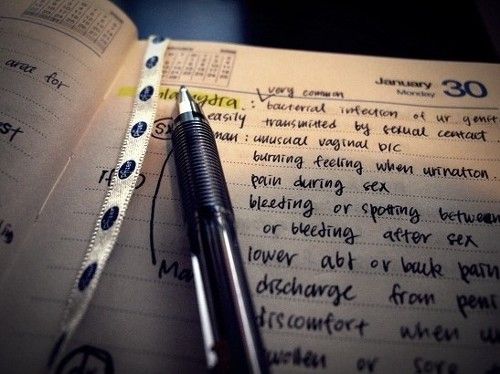 area for
January
Monday 30
very common
: bacterial infection of ur genit
easily transmitted by sexual contact
: unusual vaginal D/C
burning feeling when urination
pain during sex
bleeding or spotting between
or bleeding after sex
lower abt or back pain
discharge from pen
discomfort when u
or sore